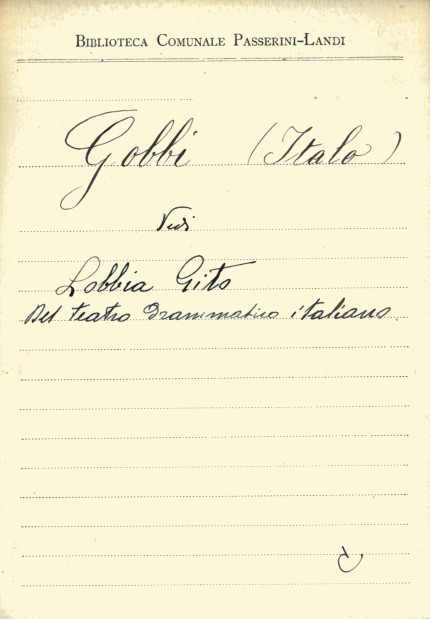 BIBLIOTECA COMUNALE PASSERINI-LANDI
Gobbi (Italo)
Vedi
Lobbia Gito
Del teatro drammatico italiano.